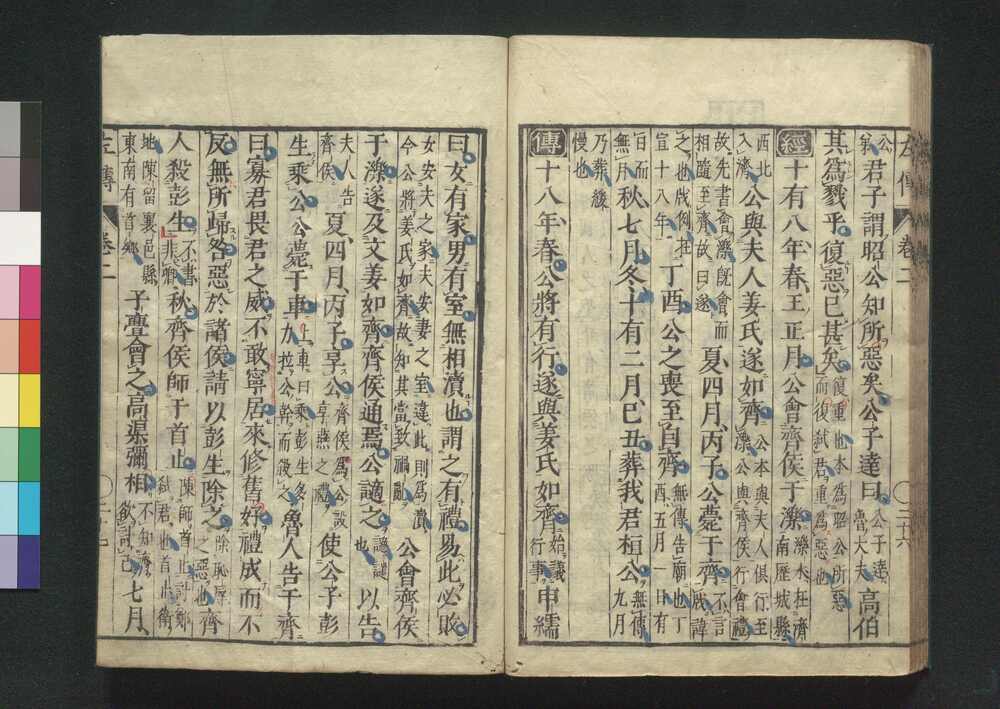 公弟君子謂昭公知所惡矣公子達曰公子達魯大夫高伯
其爲戮乎復惡已甚矣復重也本爲昭公所惡而復弑君重爲惡也
經十有八年春王正月公會齊侯于濼濼水在濟南歷城縣
西北入濟公與夫人姜氏遂如齊公本與夫人俱行至濼公與齊侯行會禮
故先書會濼旣會而相隨至齊故曰遂夏四月丙子公薨于齊不言戕諱
之也戕例在宣十八年丁酉公之喪至自齊無傳告廟也丁酉五月一日有
日而無月秋七月冬十有二月己丑葬我君桓公無傳九月
乃葬緩慢也
傳十八年春公將有行遂與姜氏如齊始議行事申繻
曰女有家男有室無相瀆也謂之有禮易此必敗
女安夫之家夫安妻之室違此則爲瀆今公將姜氏如齊故知其當致禍亂公會齊侯
于濼遂及文姜如齊齊侯通焉公謫之謫譴也以告
夫人告齊侯夏四月丙子享公齊侯爲公設享燕之禮使公子彭
生乘公公薨于車上車曰乘彭生多力拉公幹而殺之魯人告于齊
曰寡君畏君之威不敢寧居來修舊好禮成而不
反無所歸咎惡於諸侯請以彭生除之除恥辱之惡也齊
人殺彭生不書非卿秋齊侯師于首止陳師首止討鄭弑君也首止衛
地陳留襄邑縣東南有首鄉子亹會之高渠彌相不知齊欲討己七月
左傳 卷二